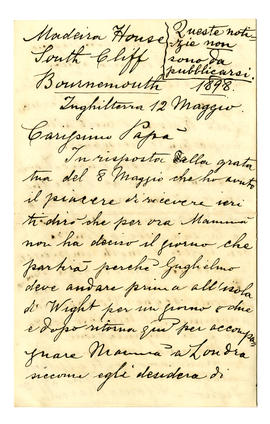 Madeira House
South Cliff
Bournemouth
Queste noti-
zie non
sono da
pubblicarsi.
1898.
Inghilterra 12 Maggio.
Carissimo Papà
In risposta alla grata
tua del 8 Maggio che ho avuto
il piacere di ricevere ieri
ti dirò che per ora Mammà
non ha deciso il giorno che
partirà perchè Guglielmo
deve andare prima all'isola
di Wight per un giorno o due
e dopo ritorna qui per accompa
gnare Mammà a Londra
siccome egli desidera di